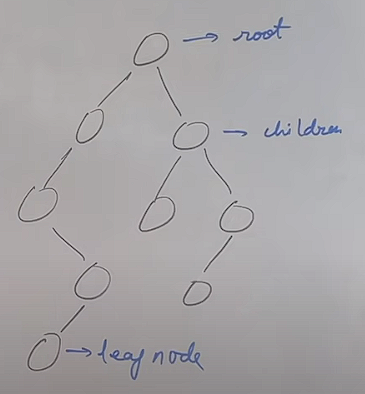 → root
→ children
→ leaf node